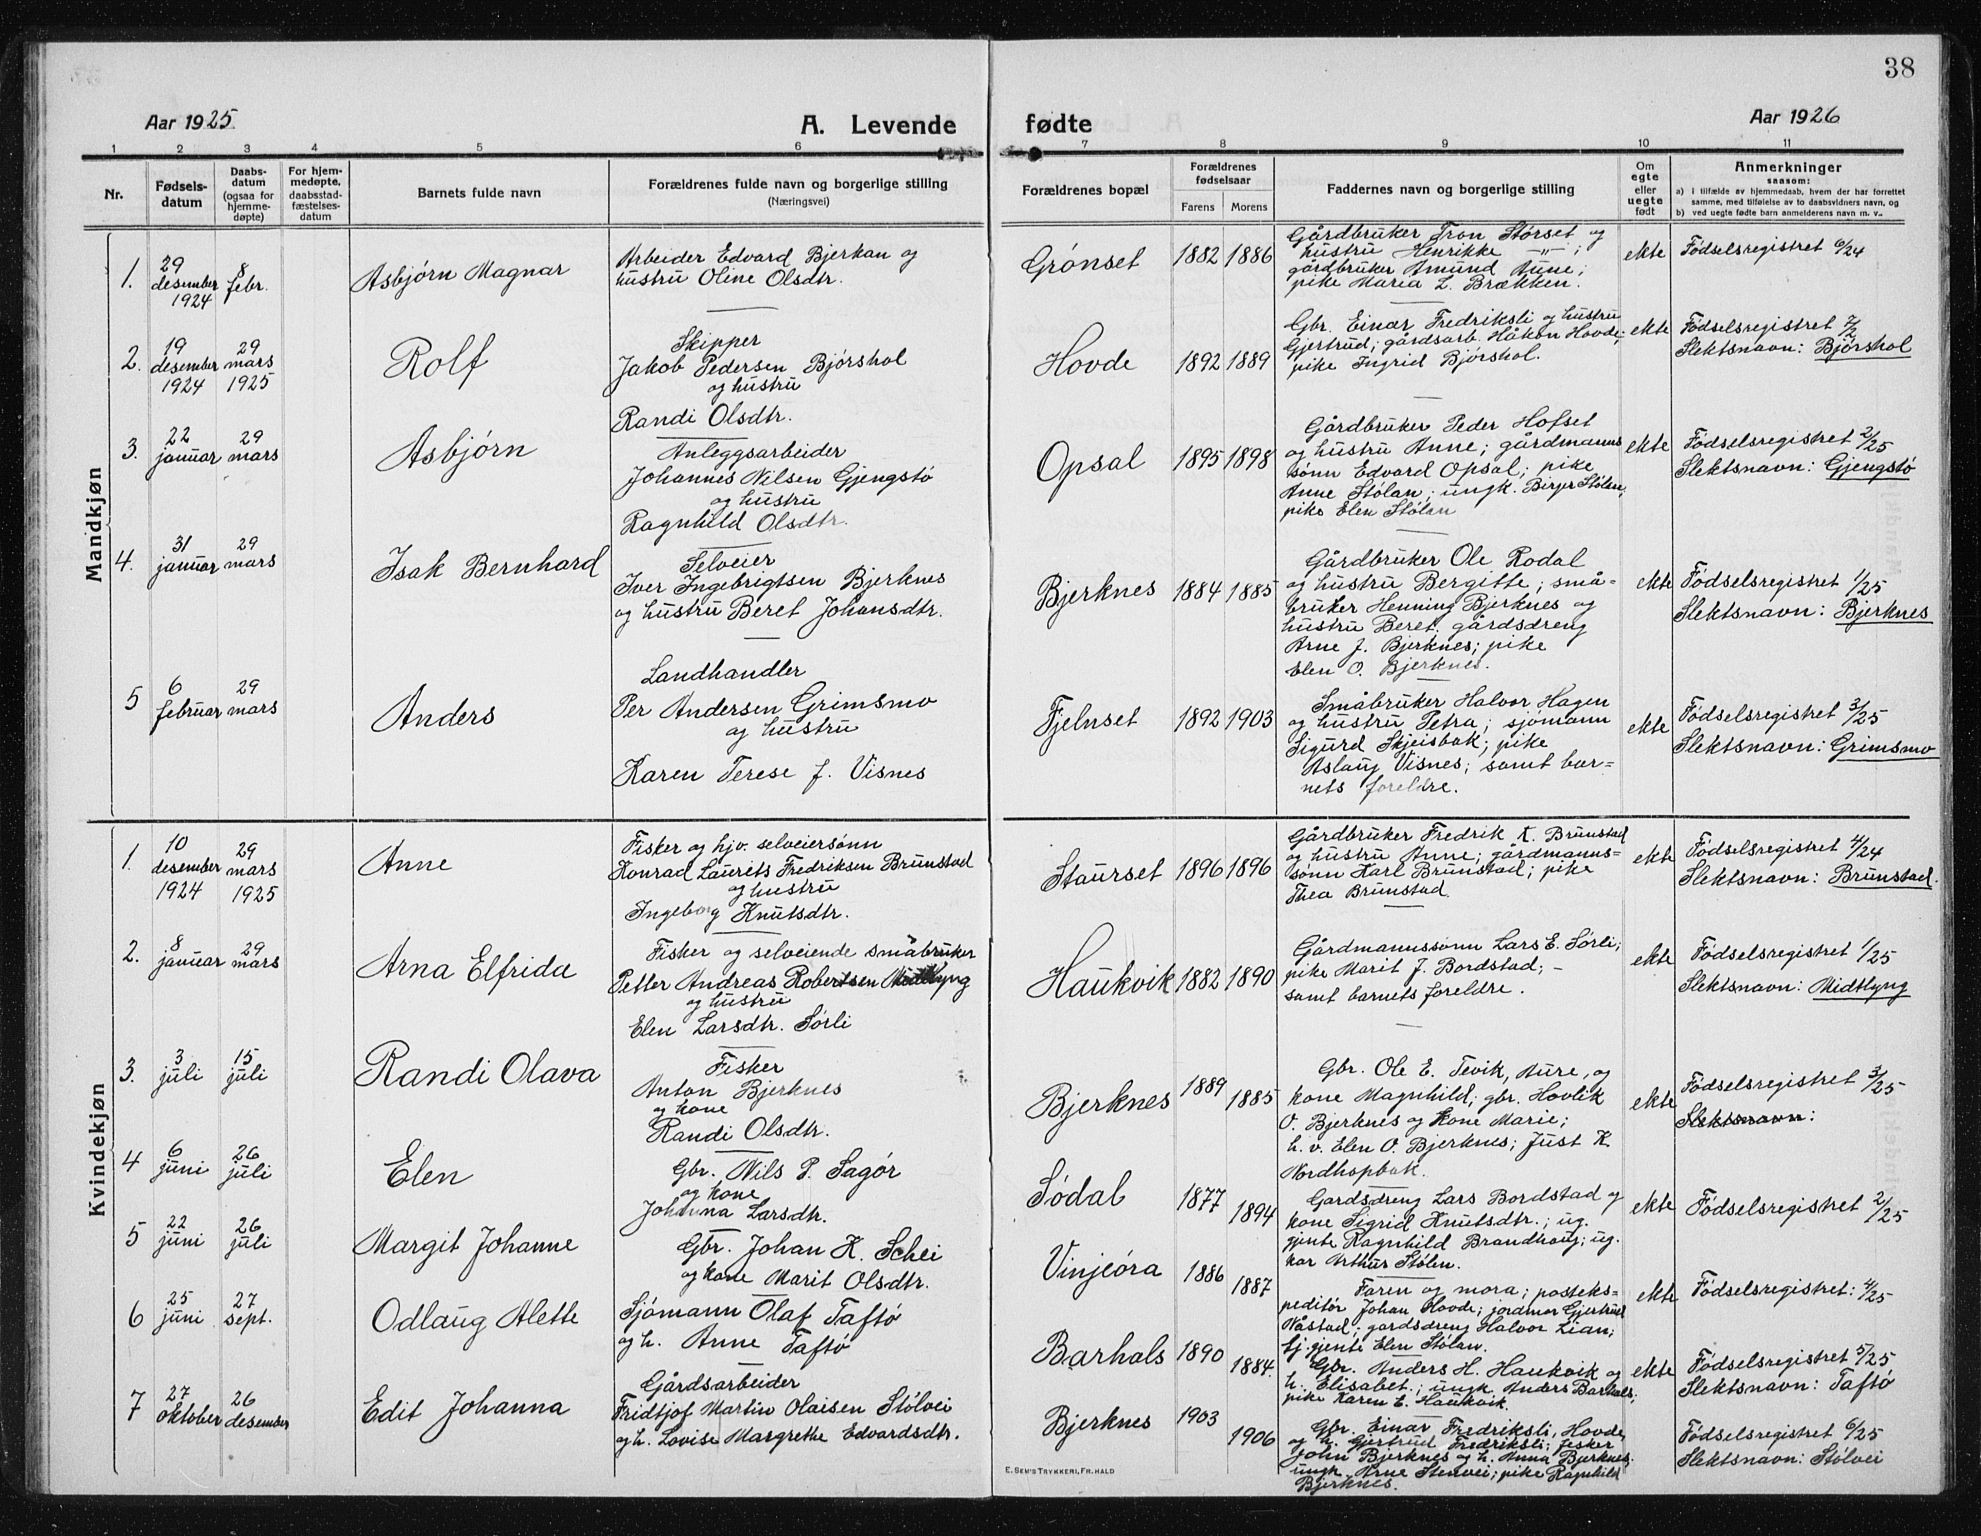 38
Aar 1925
A. Levende
fødte
Aar 1926
1 2 3 4 5 6 7 8 9 10 11
Nr.
Fødsels-
datum
Daabs-
datum
(ogsaa for
hjemme-
døpte)
For hjem-
medøpte,
daabsstad-
fæstelses-
datum
Barnets fulde navn
Forældrenes fulde navn og borgerlige stilling
(Næringsvei)
Forældrenes bopæl
Forældrenes
fødselsaar
Farens Morens
Faddernes navn og borgerlige stilling
Om
egte
eller
uegte
født
Anmerkninger
saasom:
a) I tilfælde av hjemmedaab, hvem der har forrettet
samme, med tilføielse av to daabsvidners navn, og
b) ved uegte fødte barn anmelderens navn m. v..
Mandkjøn
1. 29 desember 1924
8 febr.
Asbjørn Magnar
Arbeider Edvard Bjerkan og
hustru Oline Olsdtr.
Grönset
1882 1886
Gårdbruker Tron Störset og
hustru Henrikke — " — ;
gårdbruker Amund Aune;
pike Maria L. Brækken.
ekte
Födselsregistret 6/24
2. 19 desember 1924
29 mars 1925
Rolf
Skipper
Jakob Pedersen Bjórshol
og hustru
Randi Olsdtr.
Hovde
1892 1889
Gbr. Einar Fredriksli og hustru
Gjertrud; gårdsarb. Håkon Hovde;
pike Ingrid Bjórshol.
ekte
Födselsregistret 7/2
Slektsnavn: Bjórshol
3. 22 januar
29 mars
Asbjórn
Anleggsarbeider
Johannes Nilsen Gjengstó
og hustru
Ragnhild Olsdtr.
Opsal
1895 1898
Gårdbruker Peder Hofset
og hustru Anne; gårdmanns
sónn Edvard Opsal; pike
Anne Stólan; ungk. Birger Stólen,
pike Elen Stólan
ekte
Födselsregistret 2/25
Slektsnavn: Gjengstó
4. 31 januar
29 mars
Isak Bernhard
Selveier
Iver Ingebrigtsen Bjerknes
og hustru Beret Johansdtr.
Bjerknes
1884 1885
Gårdbruker Ole Rodal
og hustru Bergitte; små-
bruker Henning Bjerknes og
hustru Beret. gårdsdreng
Arne J. Bjerknes; pike
Elen O. Bjerknes.
ekte
Födselsregistret 1/25
Slektsnavn: Bjerknes
5 6 februar
29 mars
Anders
Landhandler
Per Andersen Grimsmo
og hustru
Karen Terese J. Visnes
Fjelnset
1892 1903
Småbruker Halvor Hagen
og hustru Petra; sjómann
Sigurd Skjeisbak; pike
Aslaug Visnes; samt bar-
nets foreldre.
ekte
Födselsregistret 3/25
Slektsnavn: Grimsmo
Kvindekjøn
1. 10 desember 1924
29 mars 1925
Anne
Fisker og hjv. selveiersónn
Konrad Laurits Fredriksen Brunstad
og hustru
Ingeborg Knutsdtr.
Staurset
1896 1896
Gårdbruker Fredrik K. Brunstad
og hustru Anne; gårdmanns-
sónn Karl Brunstad; pike
Thea Brunstad.
ekte
Födselsregistret 4/24
Slektsnavn: Brunstad.
2. 8 januar
29 mars
Arna Elfrida
Fisker og selveiende småbruker
Petter Andreas Robertsen Midtlyng
og hustru
Elen Larsdtr. Sórli
Haukvik
1882 1890
Gårdmannssónn Lars E. Sórli;
pike Marit J. Bordstad; -
samt barnets foreldre.
ekte
Födselsregistret 1/25
Slektsnavn: Midtlyng
3. 3 juli
15 juli
Randi Olava
Fisker
Anton Bjerknes
og kone
Randi Olsdtr.
Bjerknes
1889 1885
Gbr. Ole E. Tevik, Aure, og
kone Magnhild; gbr. Hovlik
O. Bjerknes og kone Marie;
h. v. Elen O. Bjerknes; Just K.
Nordhopbak.
ekte
Födselsregistret 3/25
Slektsnavn:
4 6 juni
26 juli
Elen
Gbr. Nils P. Sagór
og kone
Johanna Larsdtr.
Sódal
1877 1894
Gardsdreng Lars Bordstad og
kone Sigrid Knutsdtr.; ug.
gjente Ragnhild Brandhaug; ug.
kar Arthur Stólen.
ekte
Födselsregistret 2/25
5 22 juni
26 juli
Margit Johanne
Gbr. Johan K. Schei
og kone Marit Olsdtr.
Vinjeóra
1886 1887
Faren og mora; posteks-
peditór Johan Hovde; jordmor Gjertrud
Nåstad; gardsdreng Halvor Lian;
tj. gjente Elen Stólan.
ekte
Födselsregistret: 4/25
6 25 juni
27 sept.
Odlaug Alette
Sjómann Olaf Taftó
og h. Anne Taftó
Barhals
1890 1884.
Gbr. Anders H. Haukvik og
h. Elisabet; ungk. Anders Barhals;
pike Karen E. Haukvik.
ekte
Födselsregistret 5/25
Slektsnavn: Taftó
7 27 oktober
26 desember
Edit Johanna
Gårdsarbeider
Fridtjof Martin Olaisen Stólvei
og h. Lovise Margrethe Edvardsdtr.
Bjerknes
1903 1906
Gbr. Einar Fredriksli, Hovde,
og h. Gjertrud Fredriksli; fisker
John Bjerknes og h. Anna Bjerknes.
ungk. Arne Stenvei; pike Ragnhild
Bjerknes.
Födselsregistret 6/25
Slektsnavn: Stólvei
E. SEM'S TRYKKERI, FR.HALD